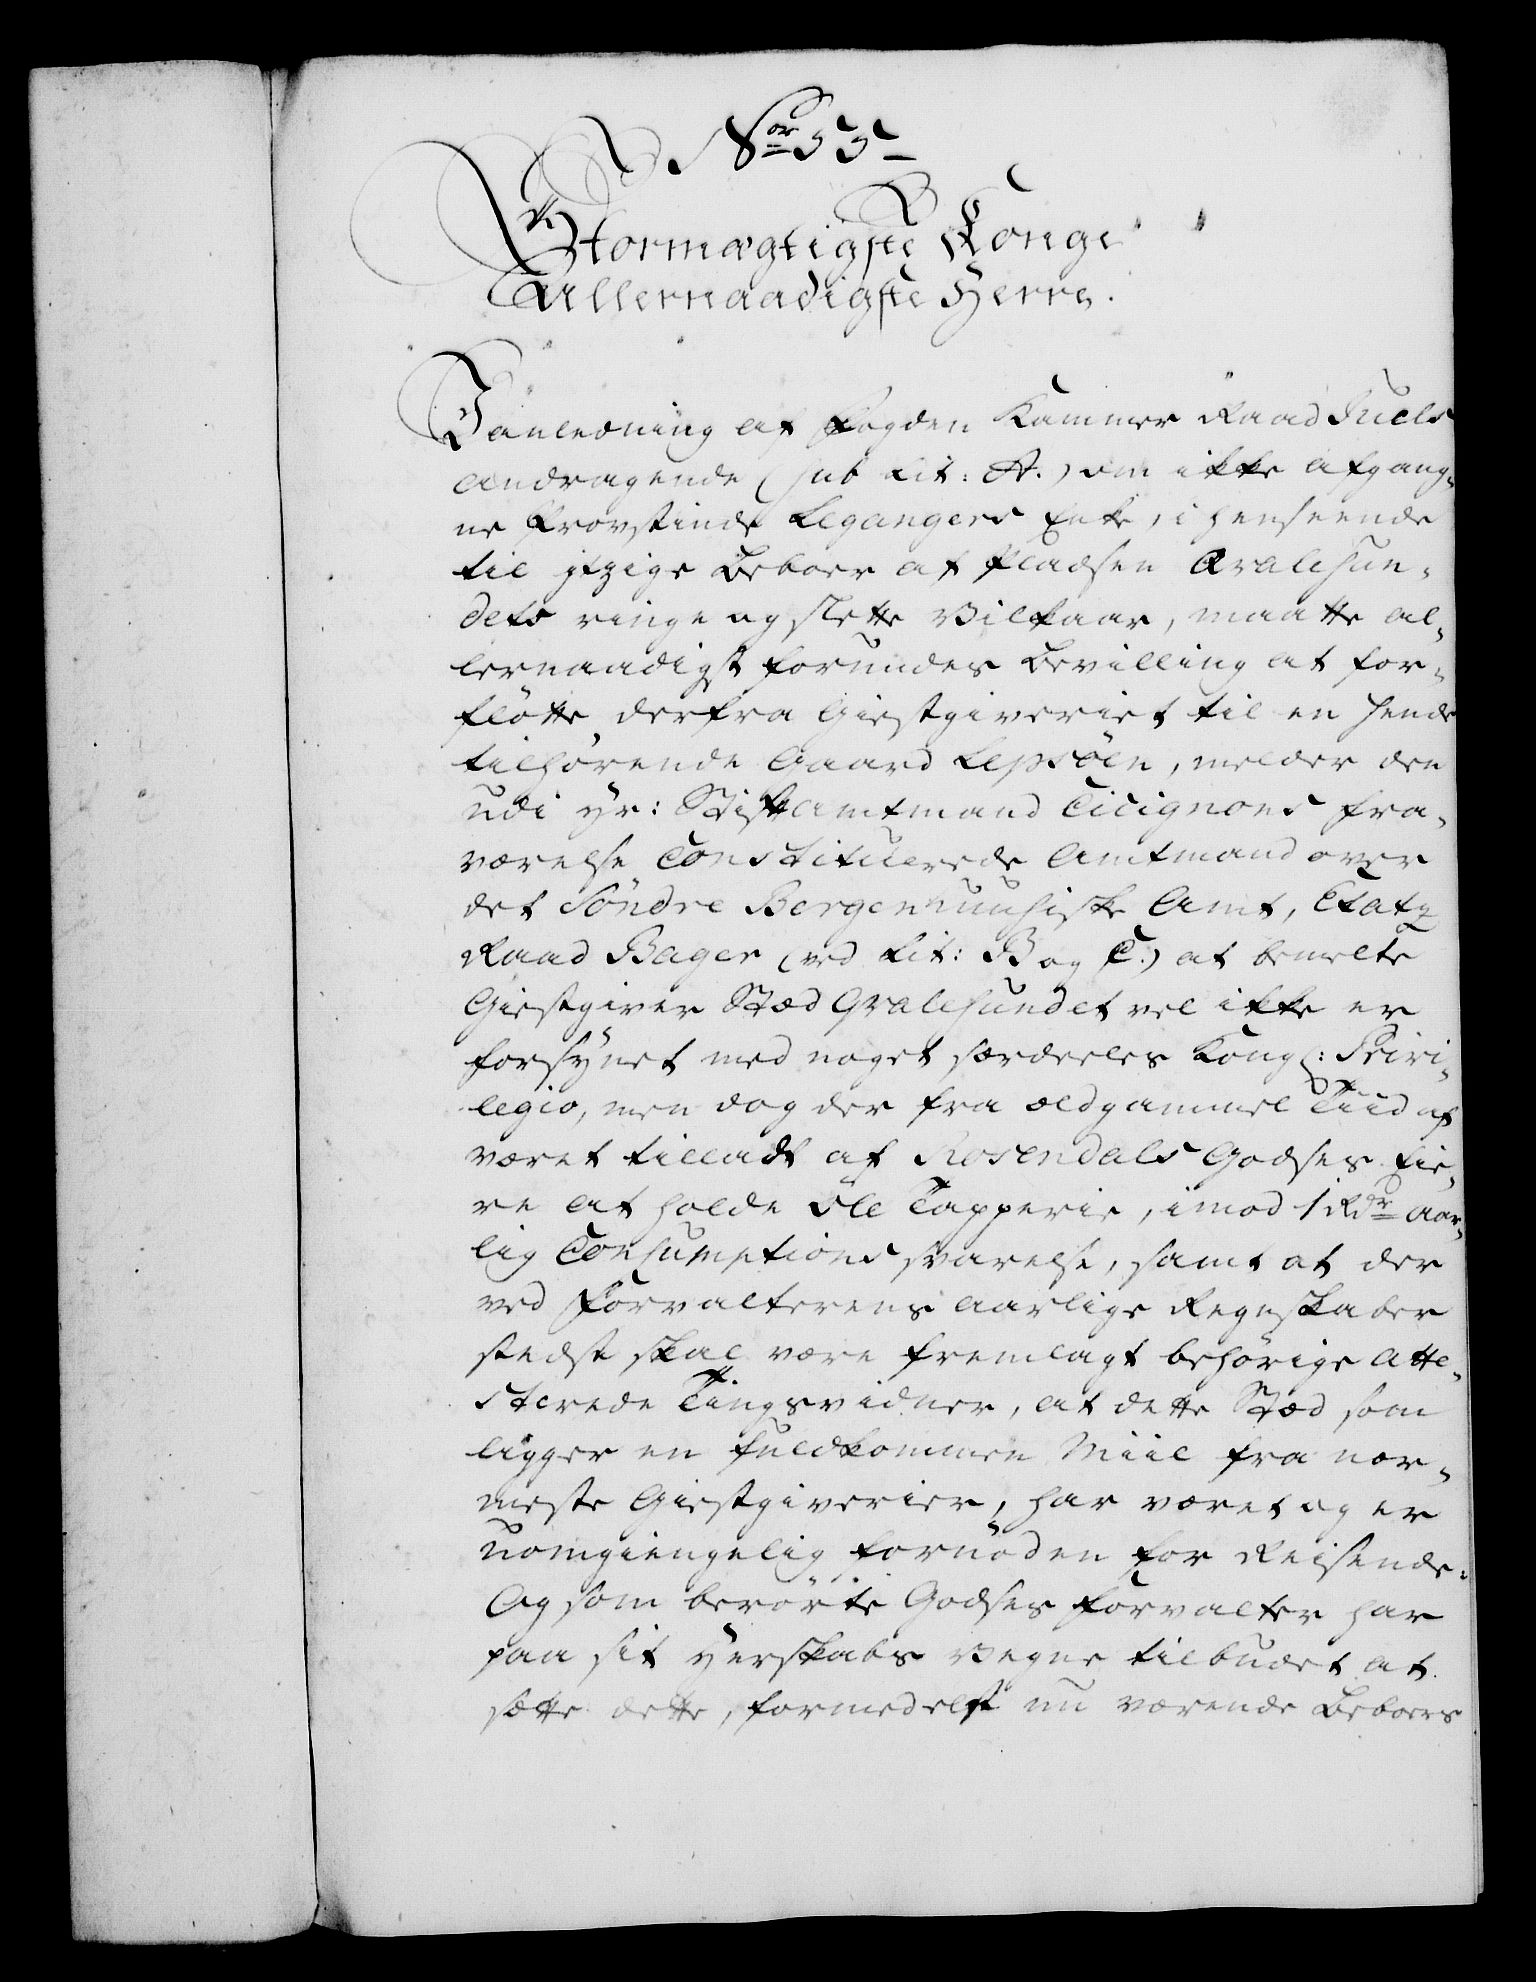 No 55
Stormægtigste Konge
Allernaadigste Herre.
I anledning af Fogden Kammer Raad Juels
andragende (sub Lit: A.) om ikke afgang-
ne Provstinde Legangers Enke, i henseende
til itzige Beboer af Pladsen Bralesun-
dets ringe og slette Vilkaar, maatte al-
lernaadigst forundes Bevilling at for-
fløtte derfra Giestgiveriet til en hende
tilhørende Gaard Lepsöen, melder den
udi Hr: Stiftamtmand Cicignons fra-
værelse Constituerede Amtmand over
det Söndre Bergenhuusiske Amt, Etatz
Raad Bager (ved Lit: B og C.) at bemelte
Giestgiver Stæd Gralesundet vel ikke er
forsÿnet med noget særdeeles Kongl: Privi-
legio, men dog der fra ældgammel Tiid af
været tilladt af Rosendals Godses Eie-
re at holde Öle Tapperie, imod 1 Rdr aar-
lig Consumptions svarelse, samt at der
ved Forvalterens aarlige Regnskaber
stedse skal være fremlagt behörige atte-
sterede Tingsvidner, at dette Stæd som
ligger en fuldkommen Miil fra nær-
meste Giestgiverier, har været og er
uomgiengelig fornöden for Reisende.
Og som berörte Godses Forvalter har
paa sit Herskabs Vegne tilbudet at
sætte dette, formedelst nu værende Beboers